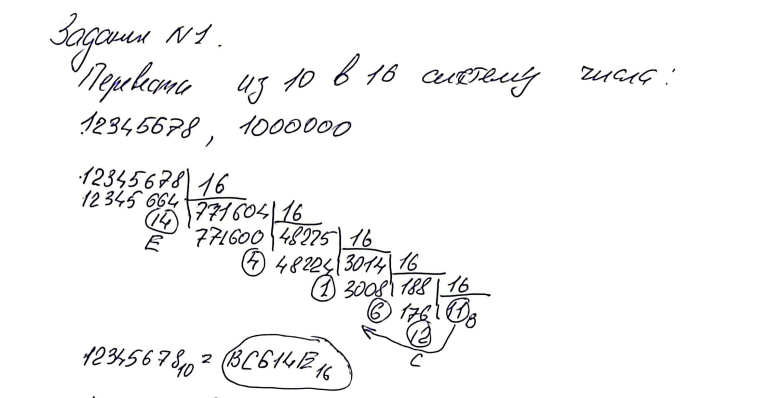 Задания N1.
Перевести из 10 в 16 систему числа:
12345678, 1000000
12345678 | 16
12345 664 | 771604 | 16
14 771600 | 48225 | 16
E 4 48224 | 3014 | 16
1 3008 | 188 | 16
6 176 | 11 B
12
C
12345678₁₀ = BC614E₁₆